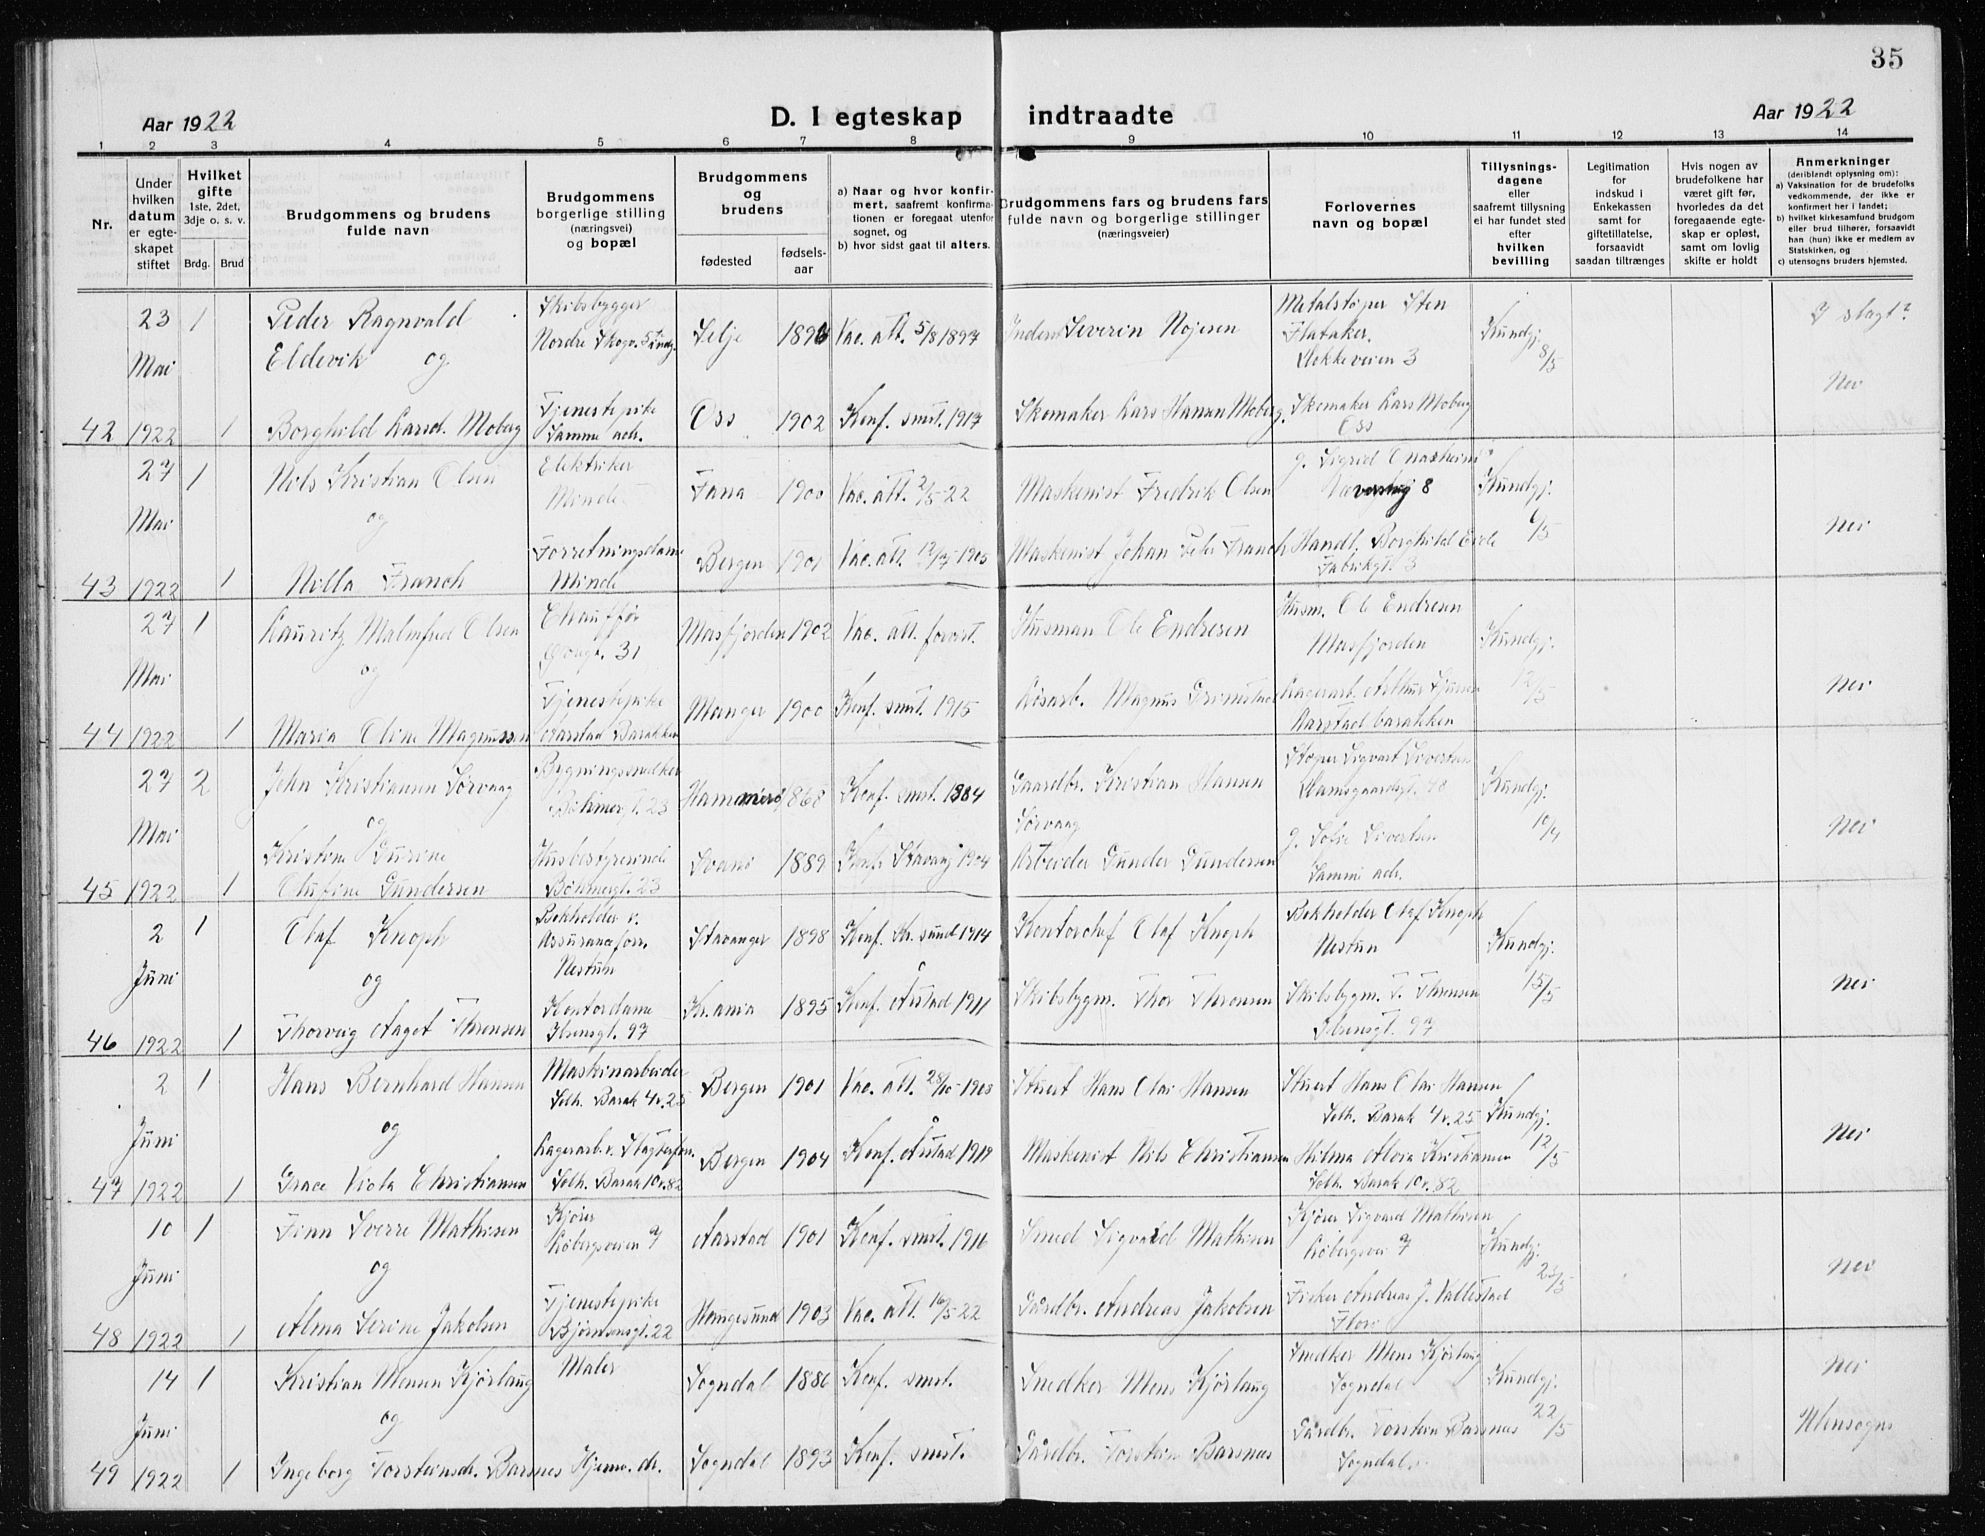 35
Aar 1922
D. I egteskap indtraadte
Aar 1922
1 2 3 4 5 6 7 8 9 10 11 12 13 14
Nr.
Under hvilken datum er egteskapet stiftet
Hvilket gifte 1ste, 2det, 3dje o. s. v.
Brdg. Brud
Brudgommens og brudens fulde navn
Brudgommens borgerlige stilling (næringsvei) og bopæl
Brudgommens og brudens
fødested
fødselsaar
a) Naar og hvor konfirmert, saafremt konfirmationen er foregaat utenfor sognet, og
b) hvor sidst gaat til alters.
Brudgommens fars og brudens fars fulde navn og borgerlige stillinger (næringsveier)
Forlovernes navn og bopæl
Tillysningsdagene eller saafremt tillysning ei har fundet sted efter hvilken bevilling
Legitimation for indskud i Enkekassen samt for giftetillatelse, forsaavidt saadan tiltrænges
Hvis nogen av brudefolkene har været gift før, hvorledes da det foregaaende egteskap er opløst, samt om lovlig skifte er holdt
Anmerkninger (deriblandt oplysning om):
a) Vaksination for de brudefolks vedkommende, der ikke er konfirmert her i landet;
b) hvilket kirkesamfund brudgom eller brud tilhører, forsaavidt han (hun) ikke er medlem av Statskirken, og
c) utensogns bruders hjemsted.
42
23 Mai 1922
1
Peder Ragnvald Eldevik og
Skibsbygger
Selje
Vac. att. 5/8 1897
Severin Nøjesen
Metalstøper Sten Flataker.
Kundgj. 8/5
1
Borghild Larsd. Moberg
Tjenestepike
Samme adr.
Oss
1902
Konf. smst. 1917
Skomaker Lars Hansen Moberg.
Skomaker Lars Moberg
Oss
Nei
43
27 Mai 1922
1
Nils Kristian Olsen
og
Elektriker
Minde
Fana
1900
Vac. att. 2/5 22
Maskinist Fredrik Olsen
Kundgj. 6/5
1
Nilla Franck
Forretningsdame
Minde
Bergen
1901
Vac. att. 12/7 1905
Maskinist Johan Peter Franck
Fabrikgt. 3
Nei
44
27 Mai 1922
1
Lauritz Malmfred Olsen
og
Chauffør
Masfjorden
1902
Vac. att. forevist.
Husman Ole Endresen
Husm. Ole Endresen
Masfjorden
Kundgj. 12/5
1
Maria Oline Magnussen
Tjenestepike
Aarstad Barakken
Manger
1900
Konf. smst. 1915
Løsarb. Magnus Grimstad
Aarstad barakken
Nei
45
27 Mai 1922
2
John Kristiansen Sørvaag
og
Bygningssnedker
Bøhmergt. 23
Hammerø
1868
Konf. smst. 1884
Gaardbr. Kristian Hansen
Sørvaag
Støper Sigvart Sivertsen
Damsgaardsgt. 48
Kundgj. 10/4
1
Kristine Gurine
Olufine Gundersen
Husbestyrerinde
Bøhmergt. 23
Svanø
1889
Konf. Stavang 1904
Arbeider Gunder Gundersen
Samme adr.
Nei
46
2 Juni 1922
1
Olaf Knoph
og
Bokholder v.
Assuranceforr.
Nestun
Stavanger
1898
Konf. Kr.sund 1914
Kontorchef Olaf Knoph
Bokholder Olaf Knoph
Nestun
Kundgj. 15/5
1
Thorveig Aaget Thronsen
Kontordame
Ibsensgt. 97
Kr.ania
1895
Konf. Årstad 1911
Skibsbygm. Thor Thronsen
Skibsbygm. T. Thronsen
Ibsensgt. 97
Nei
47
2 Juni 1922
1
Hans Bernhard Hansen
og
Maskinarbeider
Solh. Barak 4 v. 25
Bergen
1901
Vac. att. 28/10 1903
Stuert Hans Olai Hansen
Stuert Hans Olai Hansen
Solh. Barak 4 v. 25
Kundgj. 12/5
1
Grace Viola Christiansen
Solh. Barak 10 v. 82
Bergen
1904
Konf. Årstad 1919
Maskinist Nils Christiansen
Hilma Alvia Kristiansen
Solh. Barak 10 v. 82
Nei
48
10 Juni 1922
1
Finn Sverre Mathisen
og
Kjører
Løbergsveien 7
Aarstad
1901
Konf. smst. 1916
Smed Sigvald Mathisen
Kjører Sigvard Mathisen
Løbergsvei 7
Kundgj. 23/5
1
Alma Serine Jakobsen
Tjenestepike
Bjørnsonsgt. 22
Haugesund
1903
Vac. att. 16/5 22
Gårdbr. Andreas Jakobsen
Fisker Andreas J. Vallestad
Florø
Nei
49
14 Juni 1922
1
Kristian Monsen Kjørlaug
og
Maler
Sogndal
1886
Konf. smst.
Snedker Mons Kjørlaug
Snedker Mons Kjørlaug
Sogndal
Kundgj. 22/5
Nei
1
Ingeborg Torsteinsdr. Barsnes
Hjemv. dr.
Sogndal
1893
Konf. smst.
Gårdbr. Torstein Barsnes
Gårdbr. Torstein Barsnes
Sogndal
Utensogns